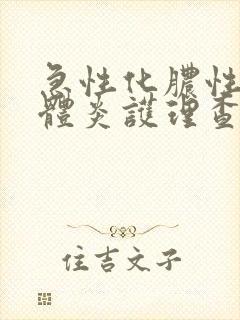 急性化膿性
體炎護理查
住吉文子